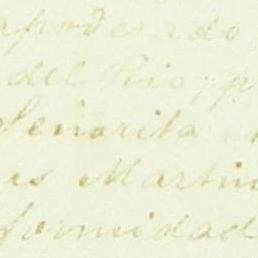 apoderado
del Rio; p
Señorita
as Martin
formidad